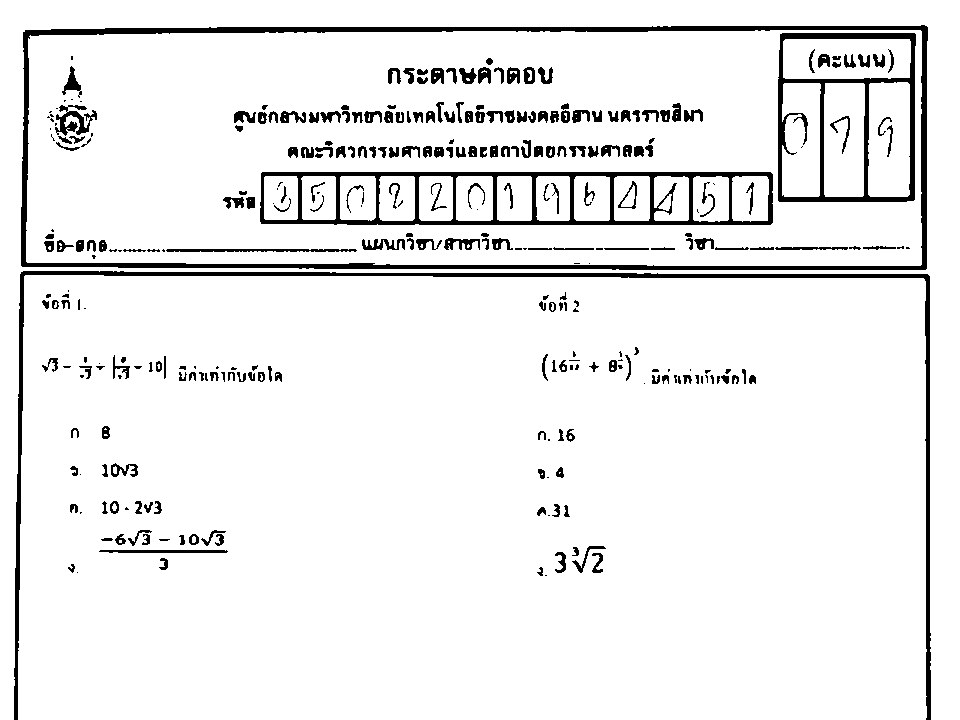 กระดาษคำตอบ
(คะแนน)
ศูนย์กลางมหาวิทยาลัยเทคโนโลยีราชมงคลอีสาน นครราชสีมา
079
คณะวิศวกรรมศาสตร์และสถาปัตยกรรมศาสตร์
รหัส 3502201964451
ชื่อ-สกุล แผนกวิชา/สาขาวิชา วิชา
ข้อที่ 1.
มีค่าเท่ากับข้อใด
ก 8
ข. 10√3
ค. 10 - 2√3
ง. (-6√3 - 10√3)/3
ข้อที่ 2
มีค่าเท่ากับข้อใด
ก. 16
ข. 4
ค.31
ง. 3∛2